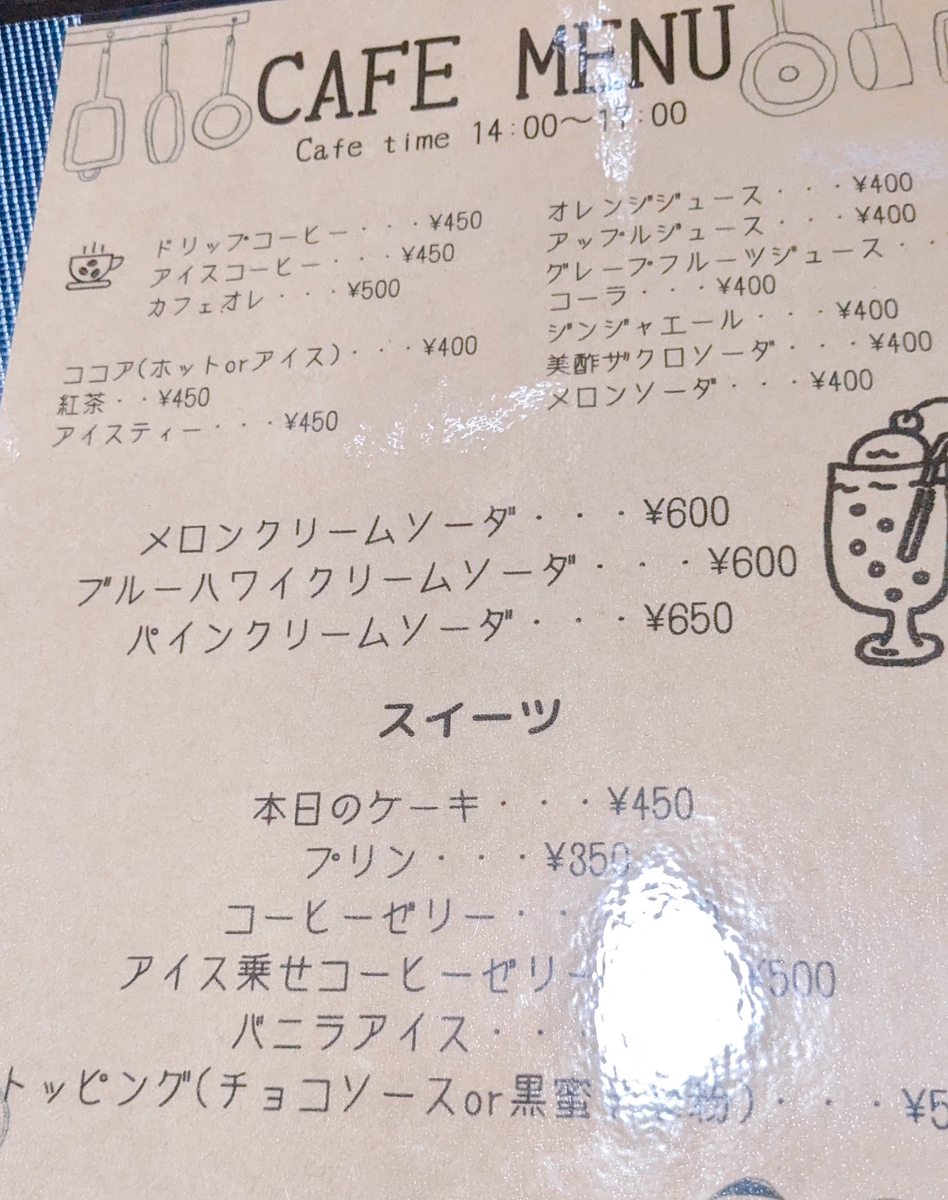 CAFE MENU
Cafe time 14:00～17:00
ドリップコーヒー・・・¥450
アイスコーヒー・・・¥450
カフェオレ・・・¥500
ココア(ホットorアイス)・・・¥400
紅茶・・¥450
アイスティー・・・¥450
オレンジジュース・・・¥400
アップルジュース・・・¥400
グレープフルーツジュース・・
コーラ・・・¥400
ジンジャエール・・・¥400
美酢ザクロソーダ・・・¥400
メロンソーダ・・・¥400
メロンクリームソーダ・・・¥600
ブルーハワイクリームソーダ・・・¥600
パインクリームソーダ・・・¥650
スイーツ
本日のケーキ・・・¥450
プリン・・・¥350
コーヒーゼリー・・
アイス乗せコーヒーゼリー ¥500
バニラアイス・・
トッピング(チョコソースor黒蜜 粉)・・・¥5